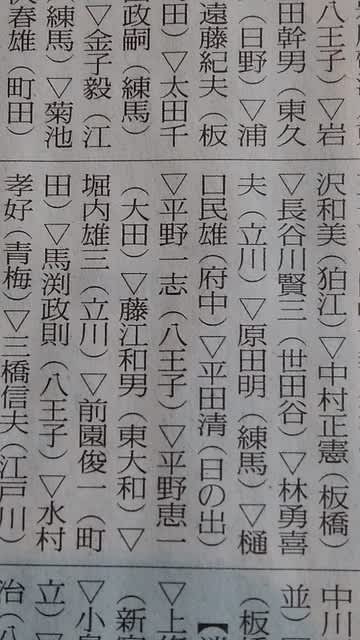 八王子）▽岩
田幹男（東久
（日野）▽浦
遠藤紀夫（板
田）▽太田千
政嗣（練馬）
▽金子毅（江
練馬）▽菊池
春雄（町田）
沢和美（狛江）▽中村正憲（板橋）
▽長谷川賢三（世田谷）▽林勇喜
夫（立川）▽原田明（練馬）▽樋
口民雄（府中）▽平田清（日の出）
▽平野一志（八王子）▽平野恵一
（大田）▽藤江和男（東大和）▽
堀内雄三（立川）▽前園俊一（町
田）▽馬渕政則（八王子）▽水村
孝好（青梅）▽三橋信夫（江戸川）
中川
並）
（板
【
▽上
（新
▽小
立）▽
治（八